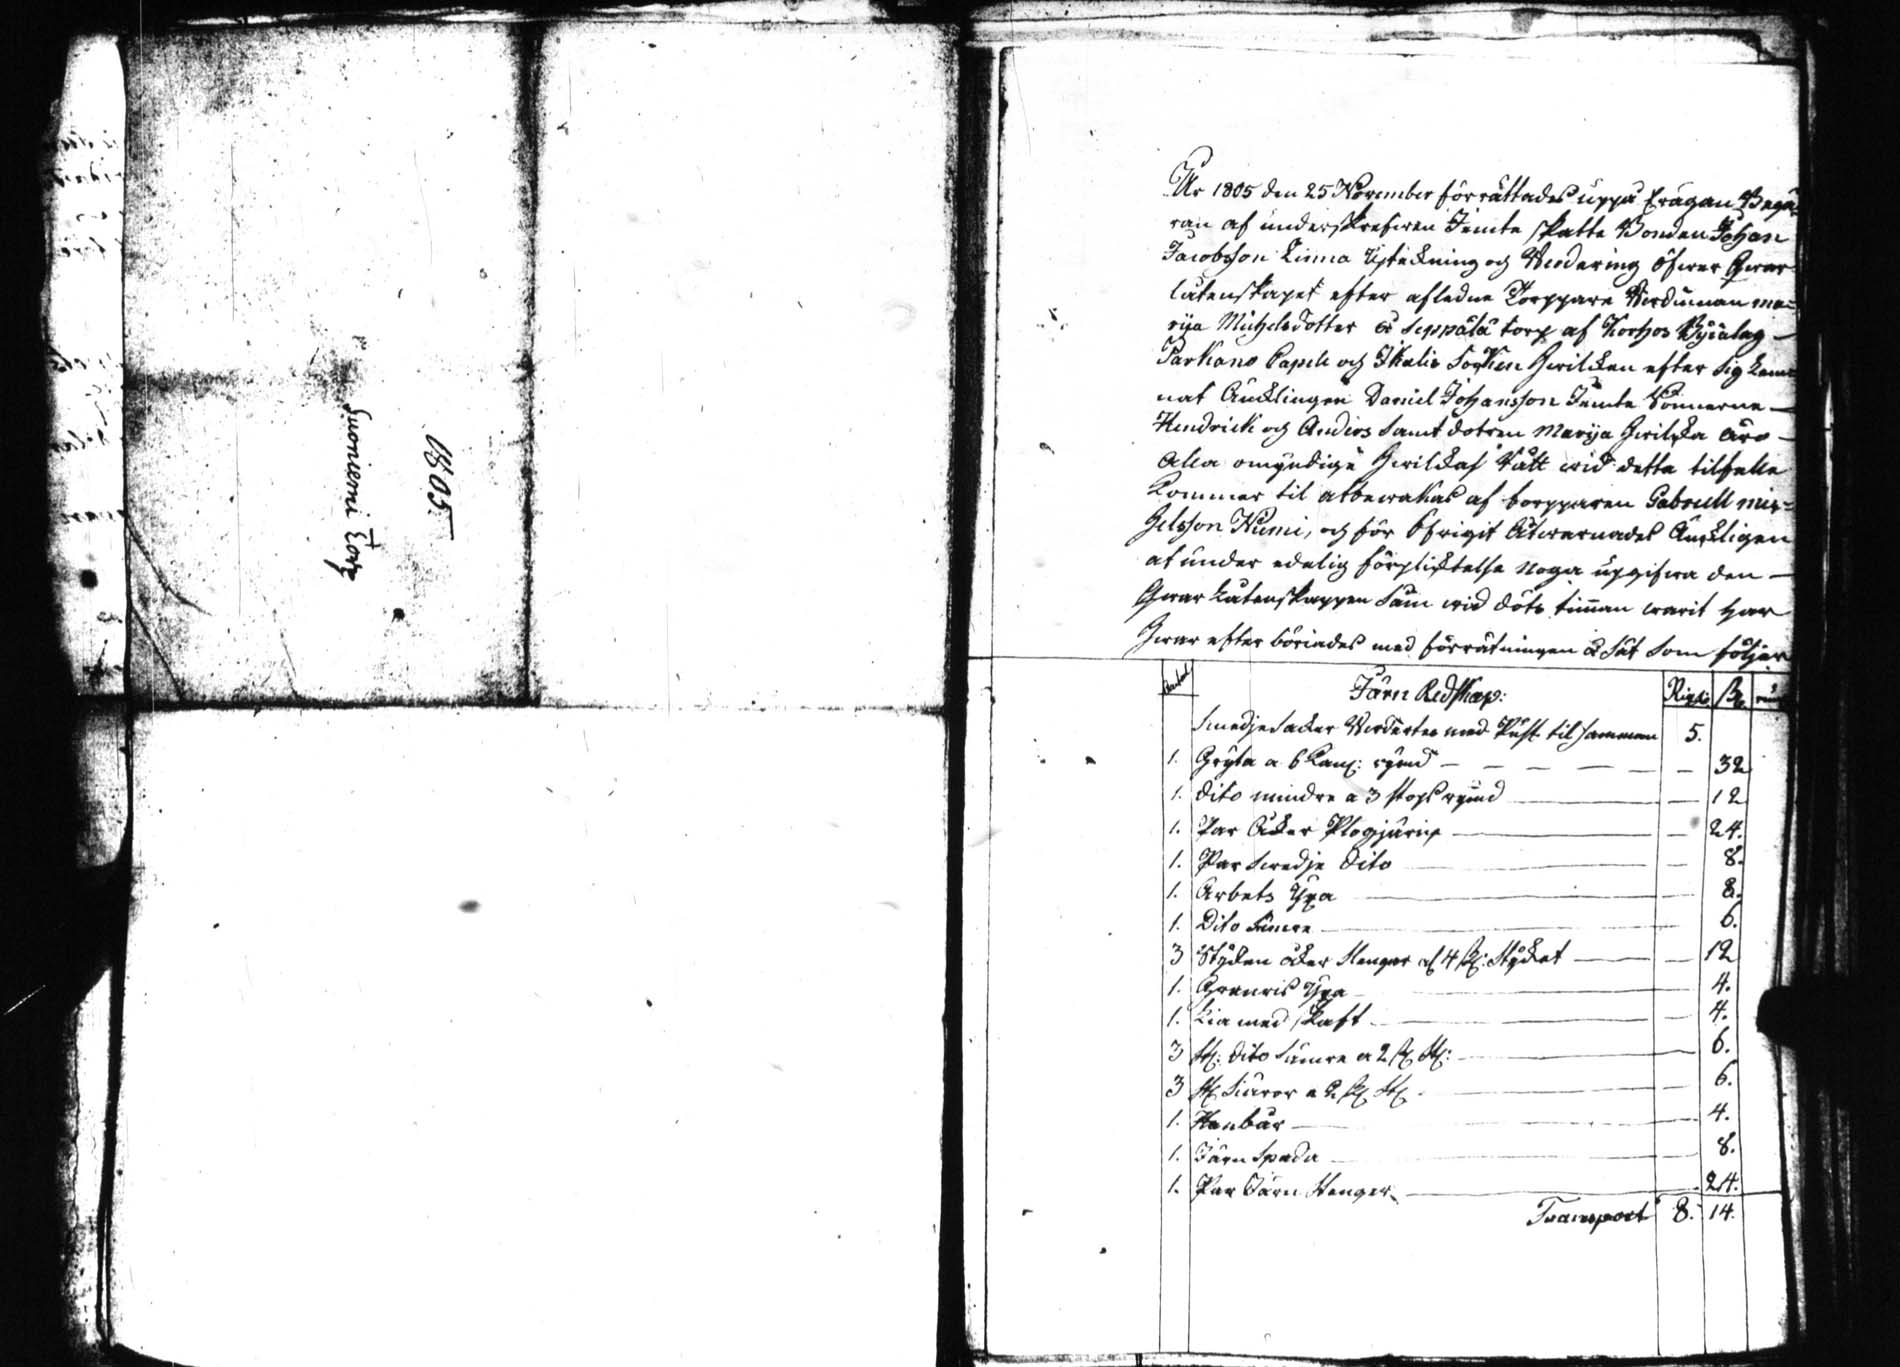 1805
Suoniemi Torp
År 1805 den 25 November förrättades uppå frågan Begä-
ran af underskrefwen Jemte skatte Bonden Johan
Jacobsson Linna Upteckning och Värdering öfwer Qwar-
låtenskapet efter afledne Torppare Värdinnan ma-
rija Michelsdotter å Seppälä torp af Korhos Byälag
Parkano Capele och Ikalis Sokken Hwilcken efter sig Lem-
nat Äncklingen Daniel Johansson Jemte Sönnerne
Hendrick och Anders Samt dotren Marija Hwilcka äro
alla omyndige Hwilckas Rätt wid detta tilfälle
Kommer til at bewakas af torpparen Gabriell mic-
helsson Niemi, och för öfrigit Åtwarnades Äncklingen
at under edelig förplicktelse noga upgifwa den
Qwar Låtenskappen Såm wid döts timman warit har
Hwar efter börjades med förrätningen å sät som följer
Antal Järn Redskap: Rigd: ß r:
Smedje Saker Värderter med Pust til samman 5.
1. Gryta a 6 Kan: rymd 32
1. dito mindre a 3 stops rymd 12
1. Par Åcker Plogjärn 24.
1. Par Swedje Dito 8.
1. Arbets Yxa 8.
1. Dito Sämre 6.
3 Stycken åcker Stenger af 4 ß: Stycket 12
1. Grenris Yxa 4.
1. Lia med skaft 4.
3 St: dito Sämre a 2 ß St: 6.
3 St: Skäror a 2 ß St: 6.
1. Nanbar 4.
1. Järn Spada 8.
1. Par Järn Stenger 24.
Transport 8. 14.